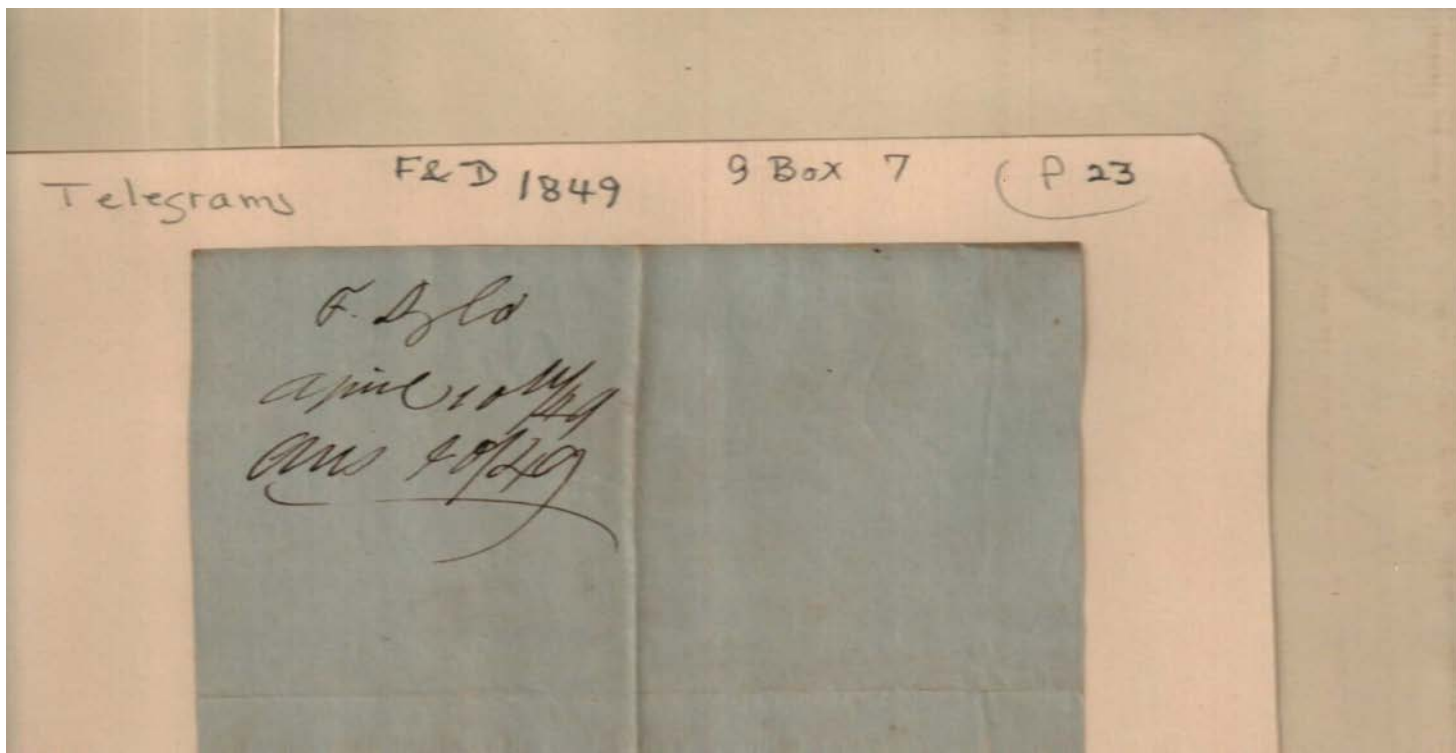 Telegrams F&D 1849 9 Box 7 (P 23
April 10th/49
ans 10/49